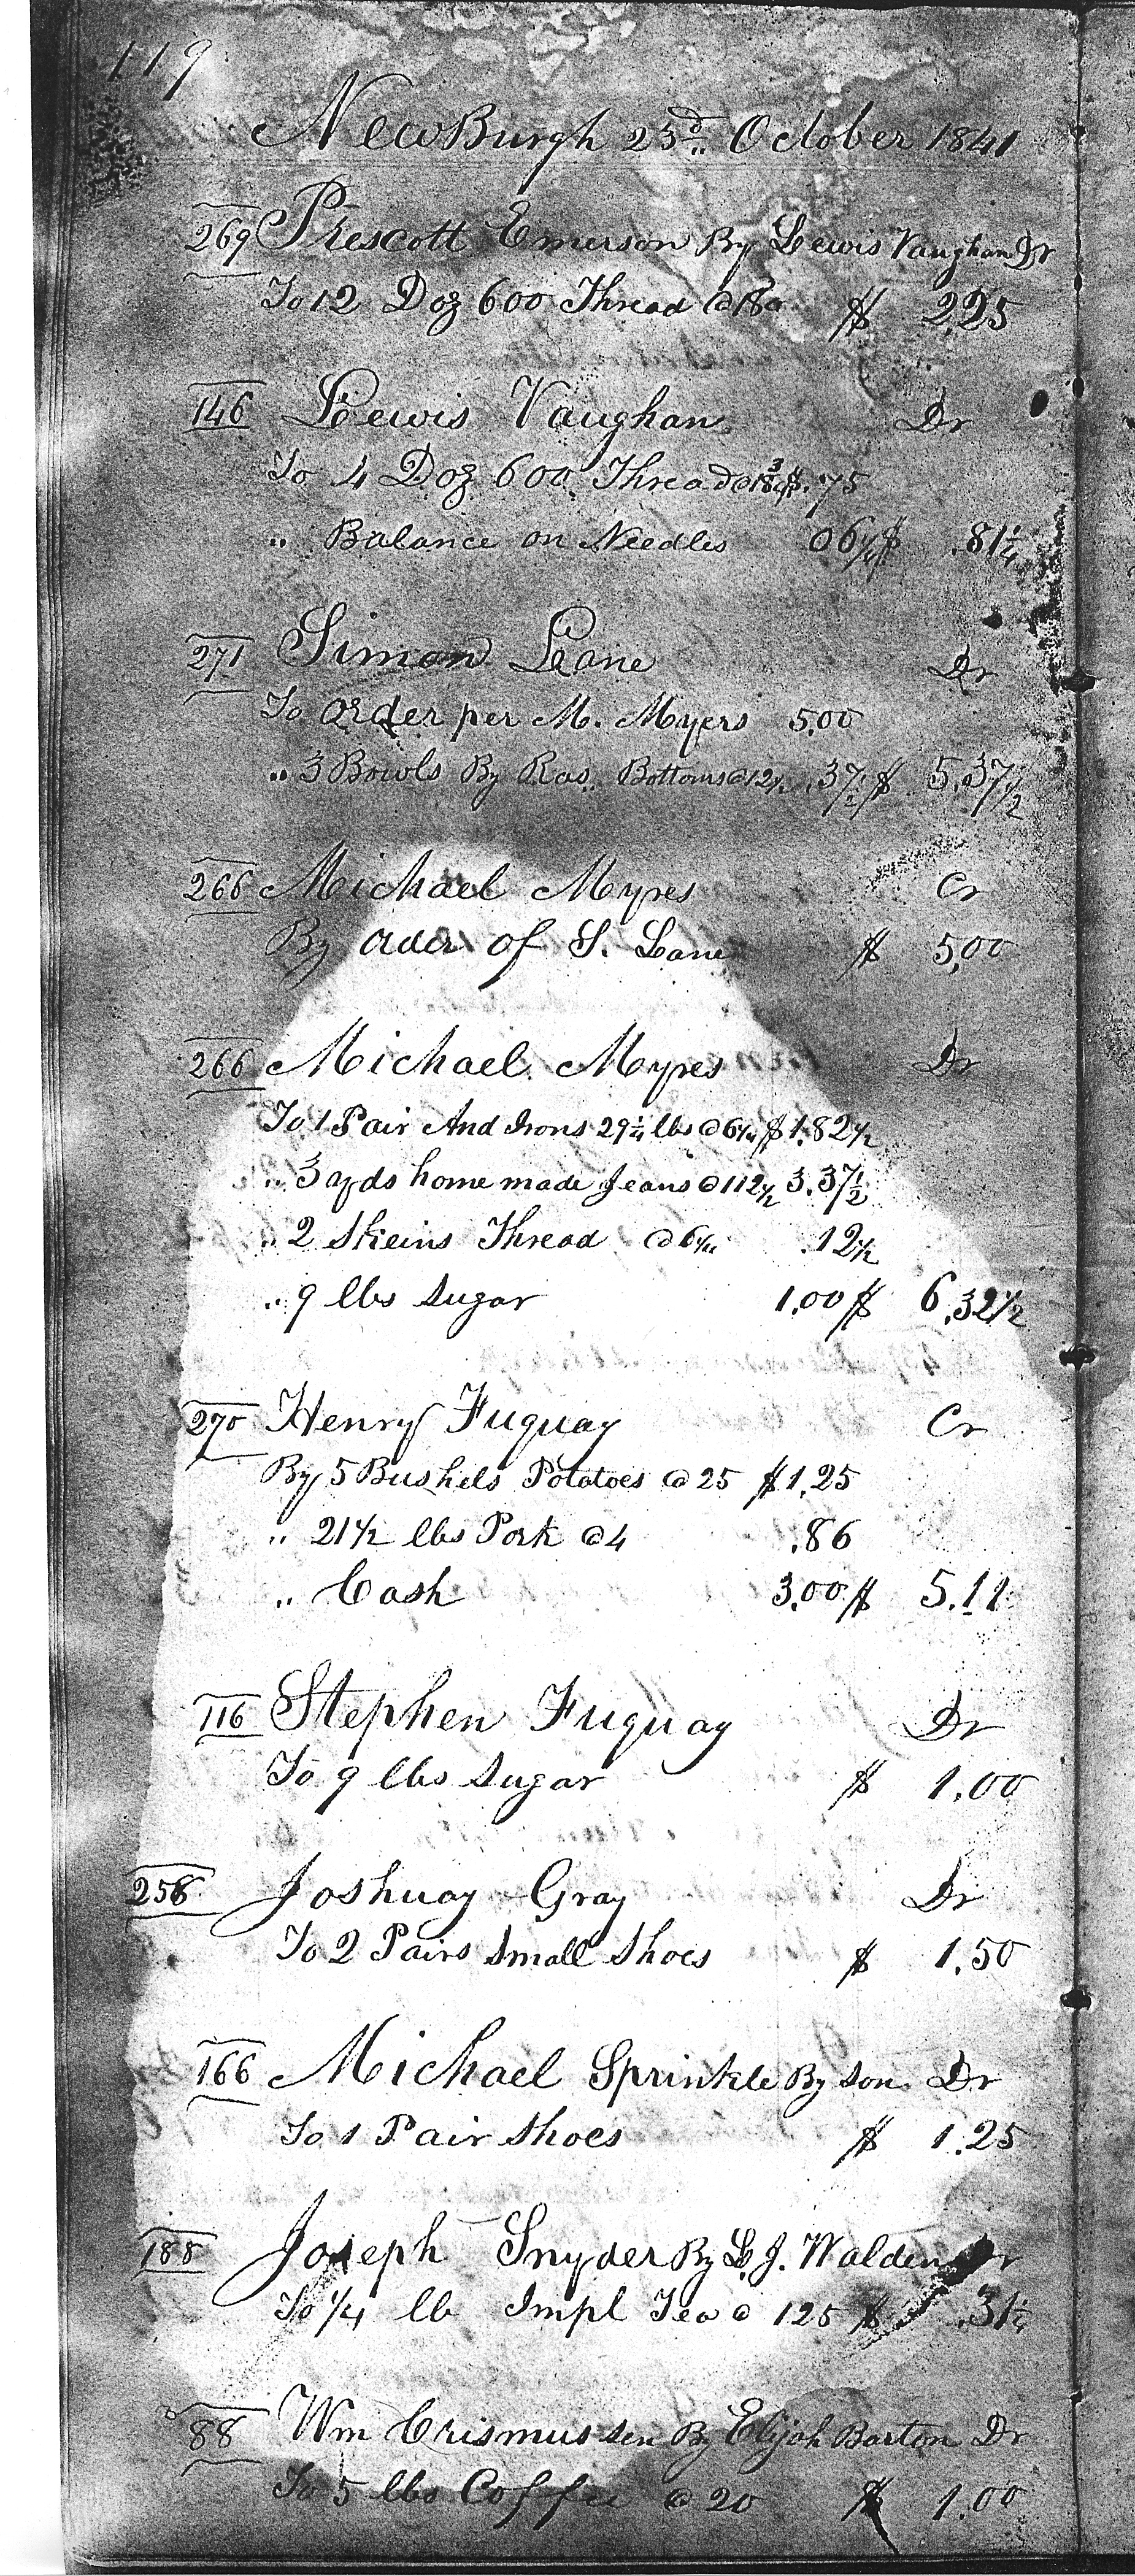 119
NewBurgh 23d. October 1841
269 Prescott Emerson By Lewis Vaughan Dr
To 12 Doz 600 Thread @ $ 2.25
146 Lewis Vaughan Dr
To 4 Doz 600 Thread @ 18 3/4 $ .75
" Balance on Needles 06 1/4 $ .81 1/4
271 Simon Lane Dr
To Order per M. Myers 5.00
" 3 Bowls By Ras. Bottoms @ 12 1/2 .37 1/2 $ 5.37 1/2
266 Michael Myres Cr
By Order of S. Lane $ 5,00
266 Michael Myres Dr
To 1 Pair And Irons 29 1/4 lbs @ 6 1/4 $ 1.82 1/2
" 3 yds home made Jeans @ 112 1/2 3.37 1/2
" 2 Skeins Thread @ 6 1/4 .12 1/2
" 9 lbs Sugar 1.00 $ 6.32 1/2
270 Henry Fuquay Cr
By 5 Bushels Potatoes @ 25 $ 1.25
" 21 1/2 lbs Pork @ 4 .86
" Cash 3.00 $ 5.11
116 Stephen Fuquay Dr
To 9 lbs Sugar $ 1.00
258 Joshuay Gray Dr
To 2 Pairs Small Shoes $ 1.50
166 Michael Sprinkle By Son Dr
To 1 Pair Shoes $ 1.25
188 Joseph Snyder By L. J. Walden Dr
To 1/4 lb Impl Tea @ 125 $ .31 1/4
88 Wm Crismussen By Elijah Barton Dr
To 5 lbs Coffee @ 20 $ 1.00